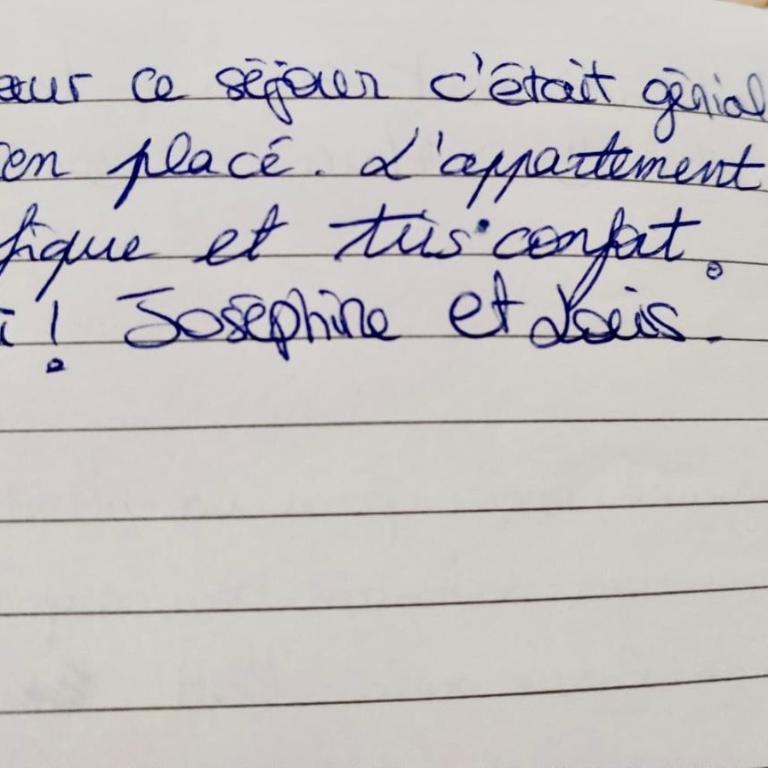 our ce séjour c'était génial
en placé. L'appartement
fique et très confort.
i ! Joséphine et Louis.